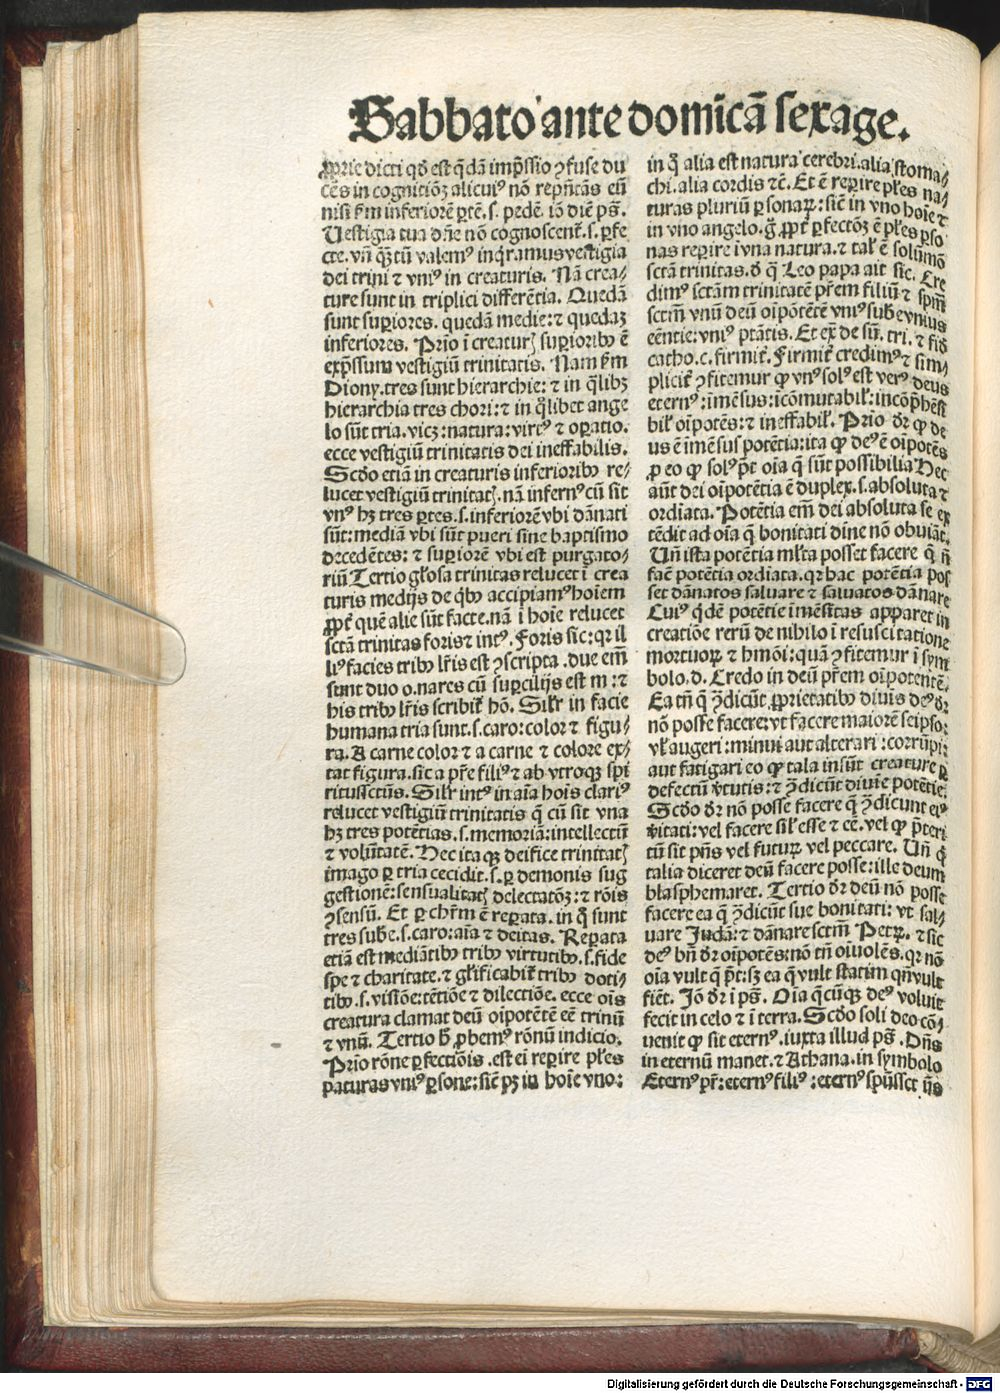 Sabbato ante domīcā sexage.
ꝓprie dicti qđ est q̄dā imp̄ssio ꝯfuse du
cēs in cognitiōꝫ alicuiꝰ nō rep̄ntās eū
nisi ẜm inferiorē ꝑtē .s. pedē. iō diē pš.
Uestigia tua dn̄e nō cognoscent̄ .s. ꝑfe
cte. vn̄ qꝫtū valemꝰ inq̄ramus vestigia
dei trini ⁊ vniꝰ in creaturis. Nā crea/
ture sunt in triplici differētia. Quedā
sunt suꝑiores. quedā medie: ⁊ quedaꝫ
inferiores. Prīo ī creaturꝭ suꝑioribꝰ ē
exp̄ssum vestigiū trinitatis. Nam ẜm
Diony. tres sunt hierarchie: ⁊ in q̄libꝫ
hierarchia tres chori: ⁊ in q̄libet ange
lo sūt tria. vicꝫ: natura: virtꝰ ⁊ oꝑatio.
ecce vestigiū trinitatis dei ineffabilis.
Scđo etiā in creaturis inferioribꝰ re/
lucet vestigiū trinitatꝭ. nā infernꝰ cū sit
vnꝰ hꝫ tres ꝑtes .s. inferiorē vbi dānati
sūt: mediā vbi sūt pueri sine baptismo
decedētes: ⁊ suꝑiorē vbi est purgato/
riū Tertio gl̄osa trinitas relucet ī crea
turis medijs de qͥbꝰ accipiamꝰ hoīem
ꝓpt̄ quē alie sūt facte. nā ī hoīe relucet
sctā trinitas foris ⁊ intꝰ. Foris sic: qꝛ il
liꝰ facies tribꝰ lr̄is est ꝯscripta. due em̄
sunt duo o. nares cū suꝑcilijs est m: ⁊
his tribꝰ lr̄is scribit̄ hō. Silr̄ in facie
humana tria sunt .s. caro: color ⁊ figu/
ra. A carne color ⁊ a carne ⁊ colore ex/
tat figura. sic a pr̄e filiꝰ ⁊ ab vtroqꝫ spi
ritussctūs. Silr̄ intꝰ in aīa hoīs clariꝰ
relucet vestigiū trinitatis q̄ cū sit vna
hꝫ tres potētias .s. memoriā: intellectū
⁊ volūtatē. Hec itaqꝫ deifice trinitatꝭ
imago ꝑ tria cecidit .s. ꝑ demonis sug
gestionē: sensualitatꝭ delectatōꝫ: ⁊ rōis
ꝯsensū. Et ꝑ chr̄m ē reꝑata. in q̄ sunt
tres sub̄e .s. caro: aīa ⁊ deitas. Reꝑata
etiā est mediātibꝰ tribꝰ virtutibꝰ .s. fide
spe ⁊ charitate. ⁊ gl̄ificabit̄ tribꝰ doti/
tibꝰ .s. visiōe: tētiōe ⁊ dilectiōe. ecce oīs
creatura clamat deū oīpotētē eē trinū
⁊ vnū. Tertio ƀ ꝓbemꝰ rōnū indicio.
Prīo rōne ꝑfectiōis. est ei reꝑire pl̄es
naturas vniꝰ ꝑsone: sicē pꝫ in hoīe vno:
in q̄ alia est natura cerebri. alia stoma/
chi. alia cordis ⁊c̄. Et ē reꝑire pl̄es na/
turas pluriū ꝑsonaꝝ: sicē in vno hoīe ⁊
in vno angelo. ḡ ꝓpt̄ ꝑfectōꝫ ē pl̄es ꝑso
nas reꝑire ī vna natura. ⁊ tal̄ ē solūmō
sctā trinitas. đ q̄ Leo papa ait sic. Cre
dimꝰ sctām trinitatē pr̄em filiū ⁊ spm̄
sctm̄ vnū deū oīpotētē vniꝰ sub̄e vnius
eēntie: vniꝰ ptātis. Et ex̄ de sū. tri. ⁊ fiđ
catho. c. firmit̄. Firmit̄ credimꝰ ⁊ sim/
plicit̄ ꝯfitemur ꝙ vnꝰ solꝰ est verꝰ deus
eternꝰ: īmēsus: icōmutabil̄: incōp̄hēsi
bil̄ oīpotēs: ⁊ ineffabil̄. Prīo dr̄ ꝙ de
us ē imēsus potētia: ita ꝙ deꝰ ē oīpotēs
ꝓ eo ꝙ solꝰ pt̄ oīa q̄ sūt possibilia Hec
aūt dei oīpotētia ē duplex .s. absoluta ⁊
ordiata. Potētia em̄ dei absoluta se ex
tēdit ad oīa q̄ bonitati dīne nō obuiāt.
Un̄ ista potētia ml̄ta posset facere q̄ n̄
facē potētia ordiata. qꝛ hac potētia pos
set dānatos saluare ⁊ saluatos dānare
Cuiꝰ q̄dē potētie īmēsitas apparet in
creatiōe rerū de nihilo ī resuscitatione
mortuoꝝ ⁊ hmōi: quā ꝯfitemur ī sym
bolo .d. Credo in deū pr̄em oīpotentē.
Ea tn̄ q̄ ꝯ̄dicūt ꝓprietatibꝰ diuīs deꝰ dr̄
nō posse facere: vt facere maiorē seipso:
vl̄ augeri: minui aut alterari: corrūpi:
aut fatigari eo ꝙ talia insūt creature ꝑ
defectū v̄tutis: ⁊ ꝯ̄dicūt diuīe potētie.
Scđo dr̄ nō posse facere q̄ ꝯ̄dicunt eiꝰ
v̄itati: vel facere sil̄ esse ⁊ eē. vel ꝙ p̄teri
tū sit pn̄s vel futuꝝ vel peccare. Un̄ q̄
talia diceret deū facere posse: ille deum
blasphemaret. Tertio dr̄ deū nō posse
facere ea q̄ ꝯ̄dicūt sue bonitati: vt sal/
uare Judā: ⁊ dānare sctm̄ Petꝝ. ⁊ sic
deꝰ bn̄ dr̄ oīpotēs: nō tn̄ oīuolēs. qꝛ nō
oīa vult q̄ pt̄: sꝫ ea q̄ vult statim qn̄ vult
fiēt. Jō dr̄ ī pš. Oīa q̄cūqꝫ deꝰ voluit
fecit in celo ⁊ ī terra. Scđo soli deo cō/
uenit ꝙ sit eternꝰ. iuxta illud pš. Dn̄s
in eternū manet. ⁊ Athana. in symbolo
Eternꝰ pr̄: eternꝰ filiꝰ: eternꝰ spūssct̄
Digitalisierung gefördert durch die Deutsche Forschungsgemeinschaft - DFG